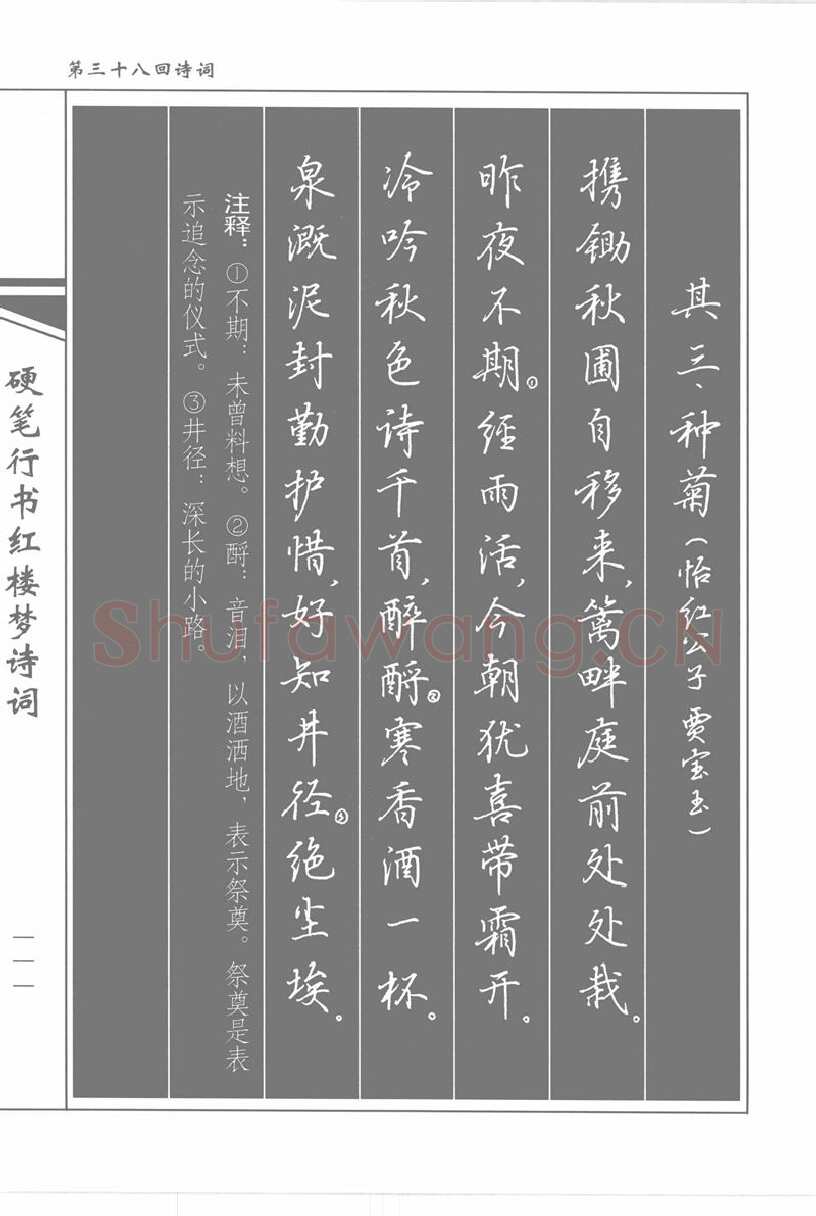 第三十八回诗词
其三、种菊(怡红公子 贾宝玉)
携锄秋圃自移来,篱畔庭前处处栽。
昨夜不期①经雨活,今朝犹喜带霜开。
冷吟秋色诗千首,醉酹②寒香酒一杯。
泉溉泥封勤护惜,好知井径③绝尘埃。
注释:①不期:未曾料想。②酹:音泪,以酒洒地,表示祭奠。祭奠是表
示追念的仪式。③井径:深长的小路。
硬笔行书红楼梦诗词
一一一
Shufawang.CN